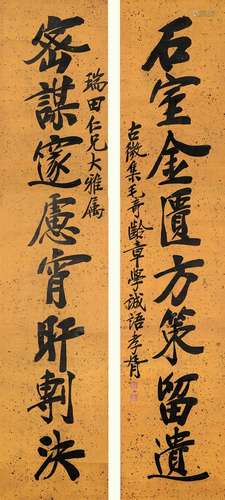 石室金匱方策留遺
古微集毛奇齡章學誠語孝胥
瑞田仁兄大雅属
密謀邃慮宵旰剸決